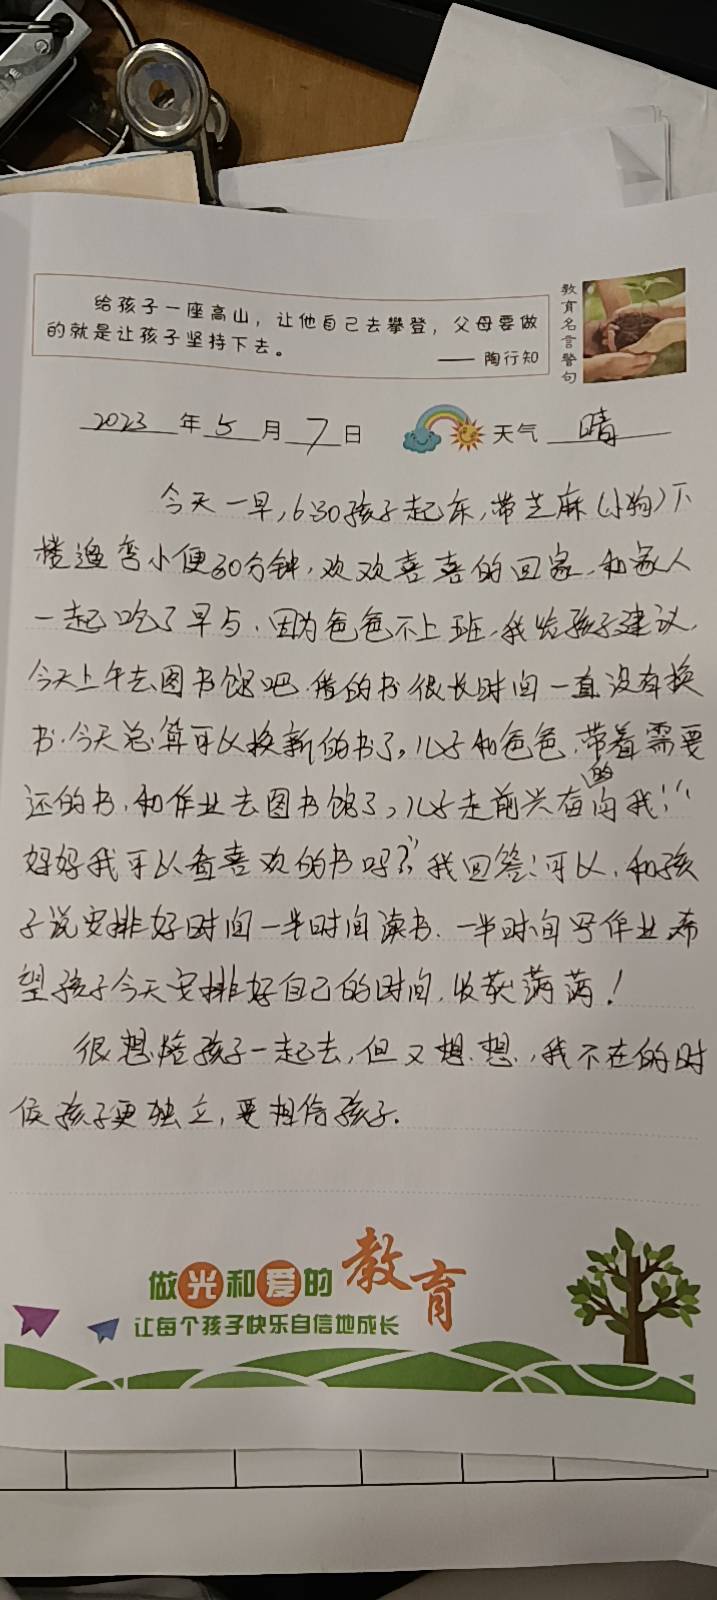 给孩子一座高山，让他自己去攀登，父母要做
的就是让孩子坚持下去。
—— 陶行知
教育名言警句
2023年5月7日 天气 晴
今天一早，6:30孩子起床，带芝麻(小狗)下
楼遛弯小便30分钟，欢欢喜喜的回家，和家人
一起吃了早与，因为爸爸不上班，我给孩子建议，
今天上午去图书馆吧，借的书很长时间一直没有换
书，今天总算可以换新的书了，儿子和爸爸，带着需要
还的书，和作业去图书馆了，儿子走前兴奋的向我：“
妈妈我可以看喜欢的书吗？”我回答：可以，和孩
子说安排好时间一半时间读书，一半时间写作业，希
望孩子今天安排好自己的时间，收获满满！
很想陪孩子一起去，但又想，想，我不在的时
候孩子更独立，要相信孩子．
做光和爱的教育
让每个孩子快乐自信地成长